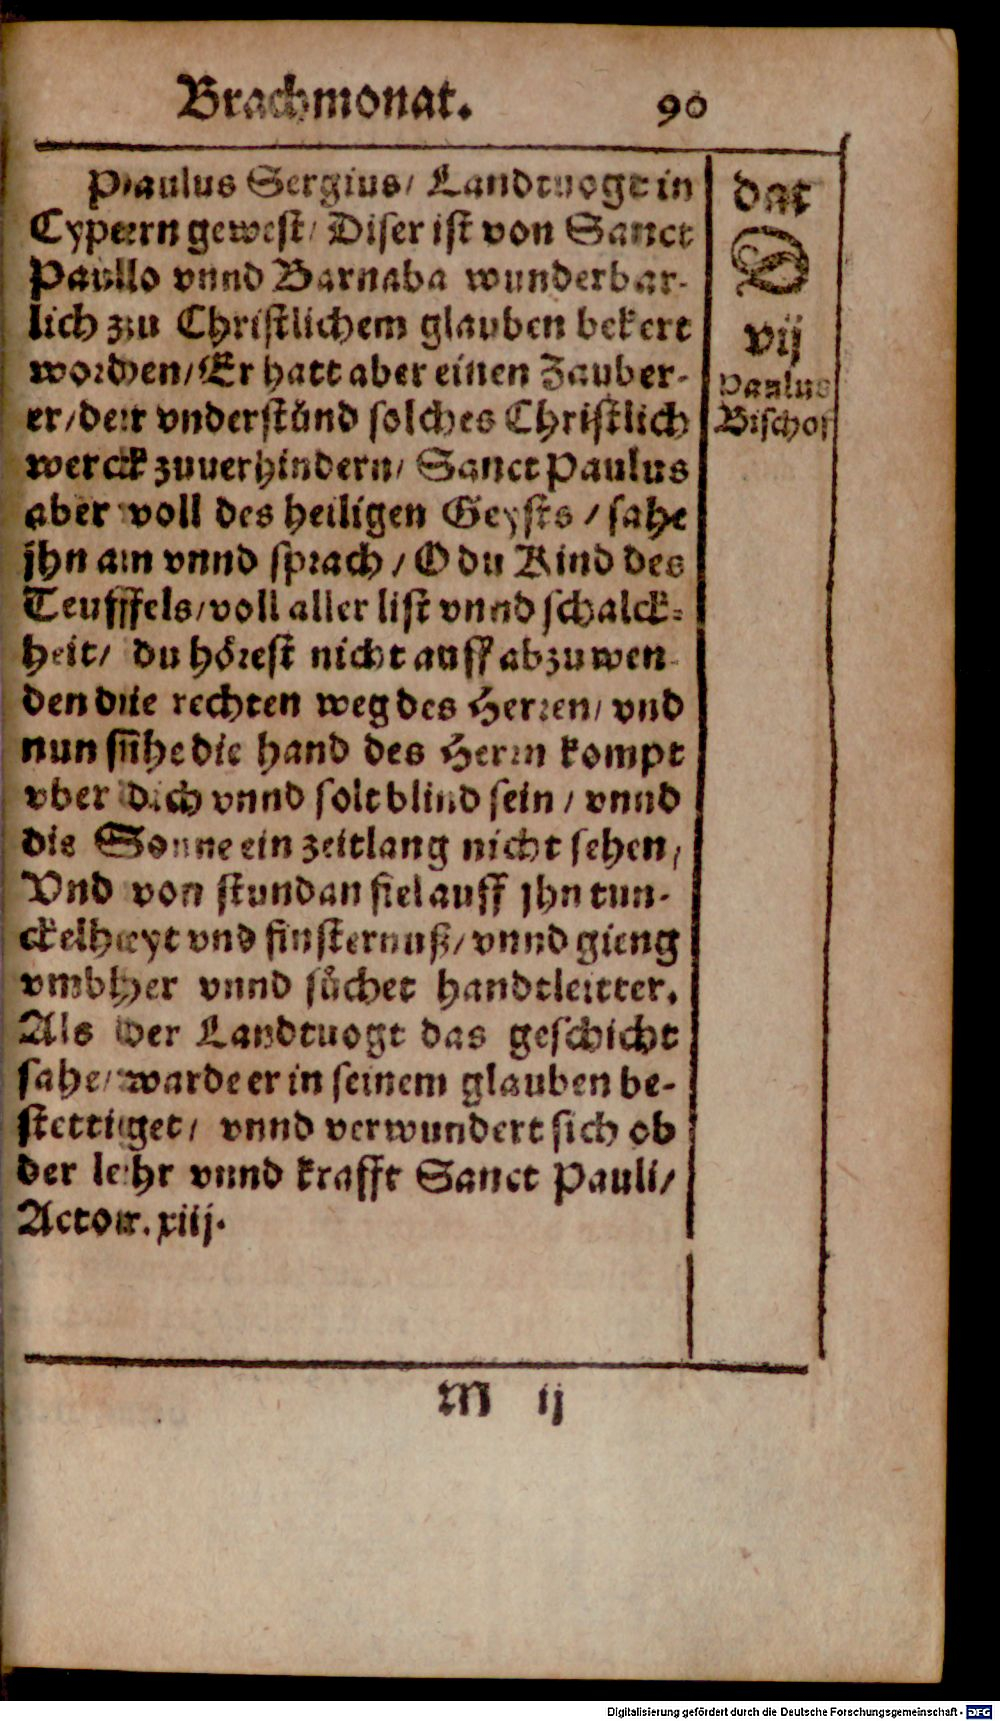 Brachmonat. 90
Paulus Sergius/ Landtuogt in
Cypern gewest/ Diser ist von Sanct
Paullo vnnd Barnaba wunderbar-
lich zu Christlichem glauben bekert
worden/ Er hatt aber einen Zauber-
er/ der vnderstůnd solches Christlich
werck zuuerhindern/ Sanct Paulus
aber voll des heiligen Geysts / sahe
jhn an vnnd sprach / O du Kind des
Teufffels/ voll aller list vnnd schalck-
heit/ du hőrest nicht auff abzuwen-
den die rechten weg des Herren/ vnd
nun sihe die hand des Herrn kompt
vber dich vnnd solt blind sein / vnnd
die Sonne ein zeitlang nicht sehen/
Vnd von stundan fiel auff jhn tun-
ckelheyt vnd finsternuß/ vnnd gieng
vmbher vnnd sůchet handtleitter.
Als der Landtuogt das geschicht
sahe/ warde er in seinem glauben be-
stettiget/ vnnd verwundert sich ob
der lehr vnnd krafft Sanct Pauli/
Actor. xiij.
dat
D
vij
Paulus
Bischof
M ij
Digitalisierung gefördert durch die Deutsche Forschungsgemeinschaft - DFG